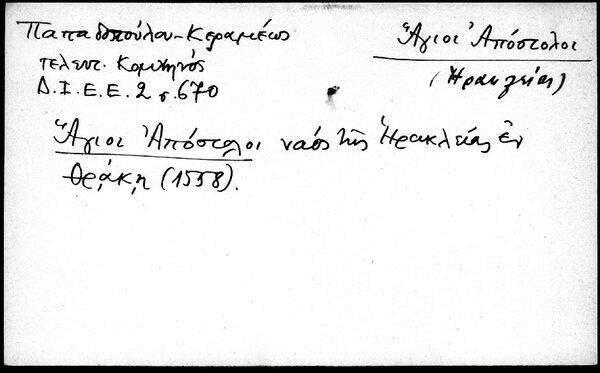 Παπαδοπούλου-Κεραμέως
τελευτ. Κομνηνός
Δ.Ι.Ε.Ε. 2 σ. 670
Ἅγιοι Ἀπόστολοι
(Ἡρακλείας)
Ἅγιοι Ἀπόστολοι ναός τῆς Ἡρακλείας ἐν
Θρᾴκῃ (1558).